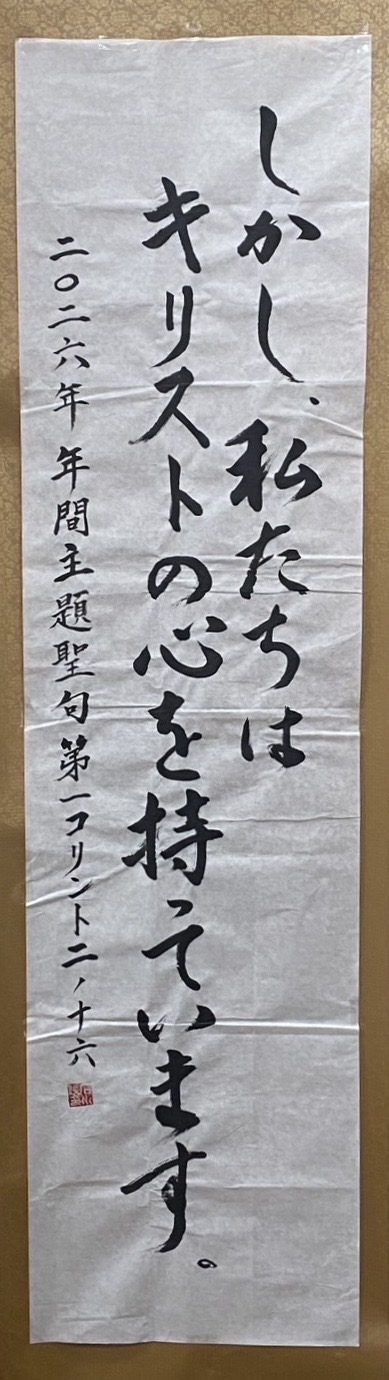 しかし、私たちは
キリストの心を持っています。
二〇二六年 年間主題聖句 第一コリント二ノ十六